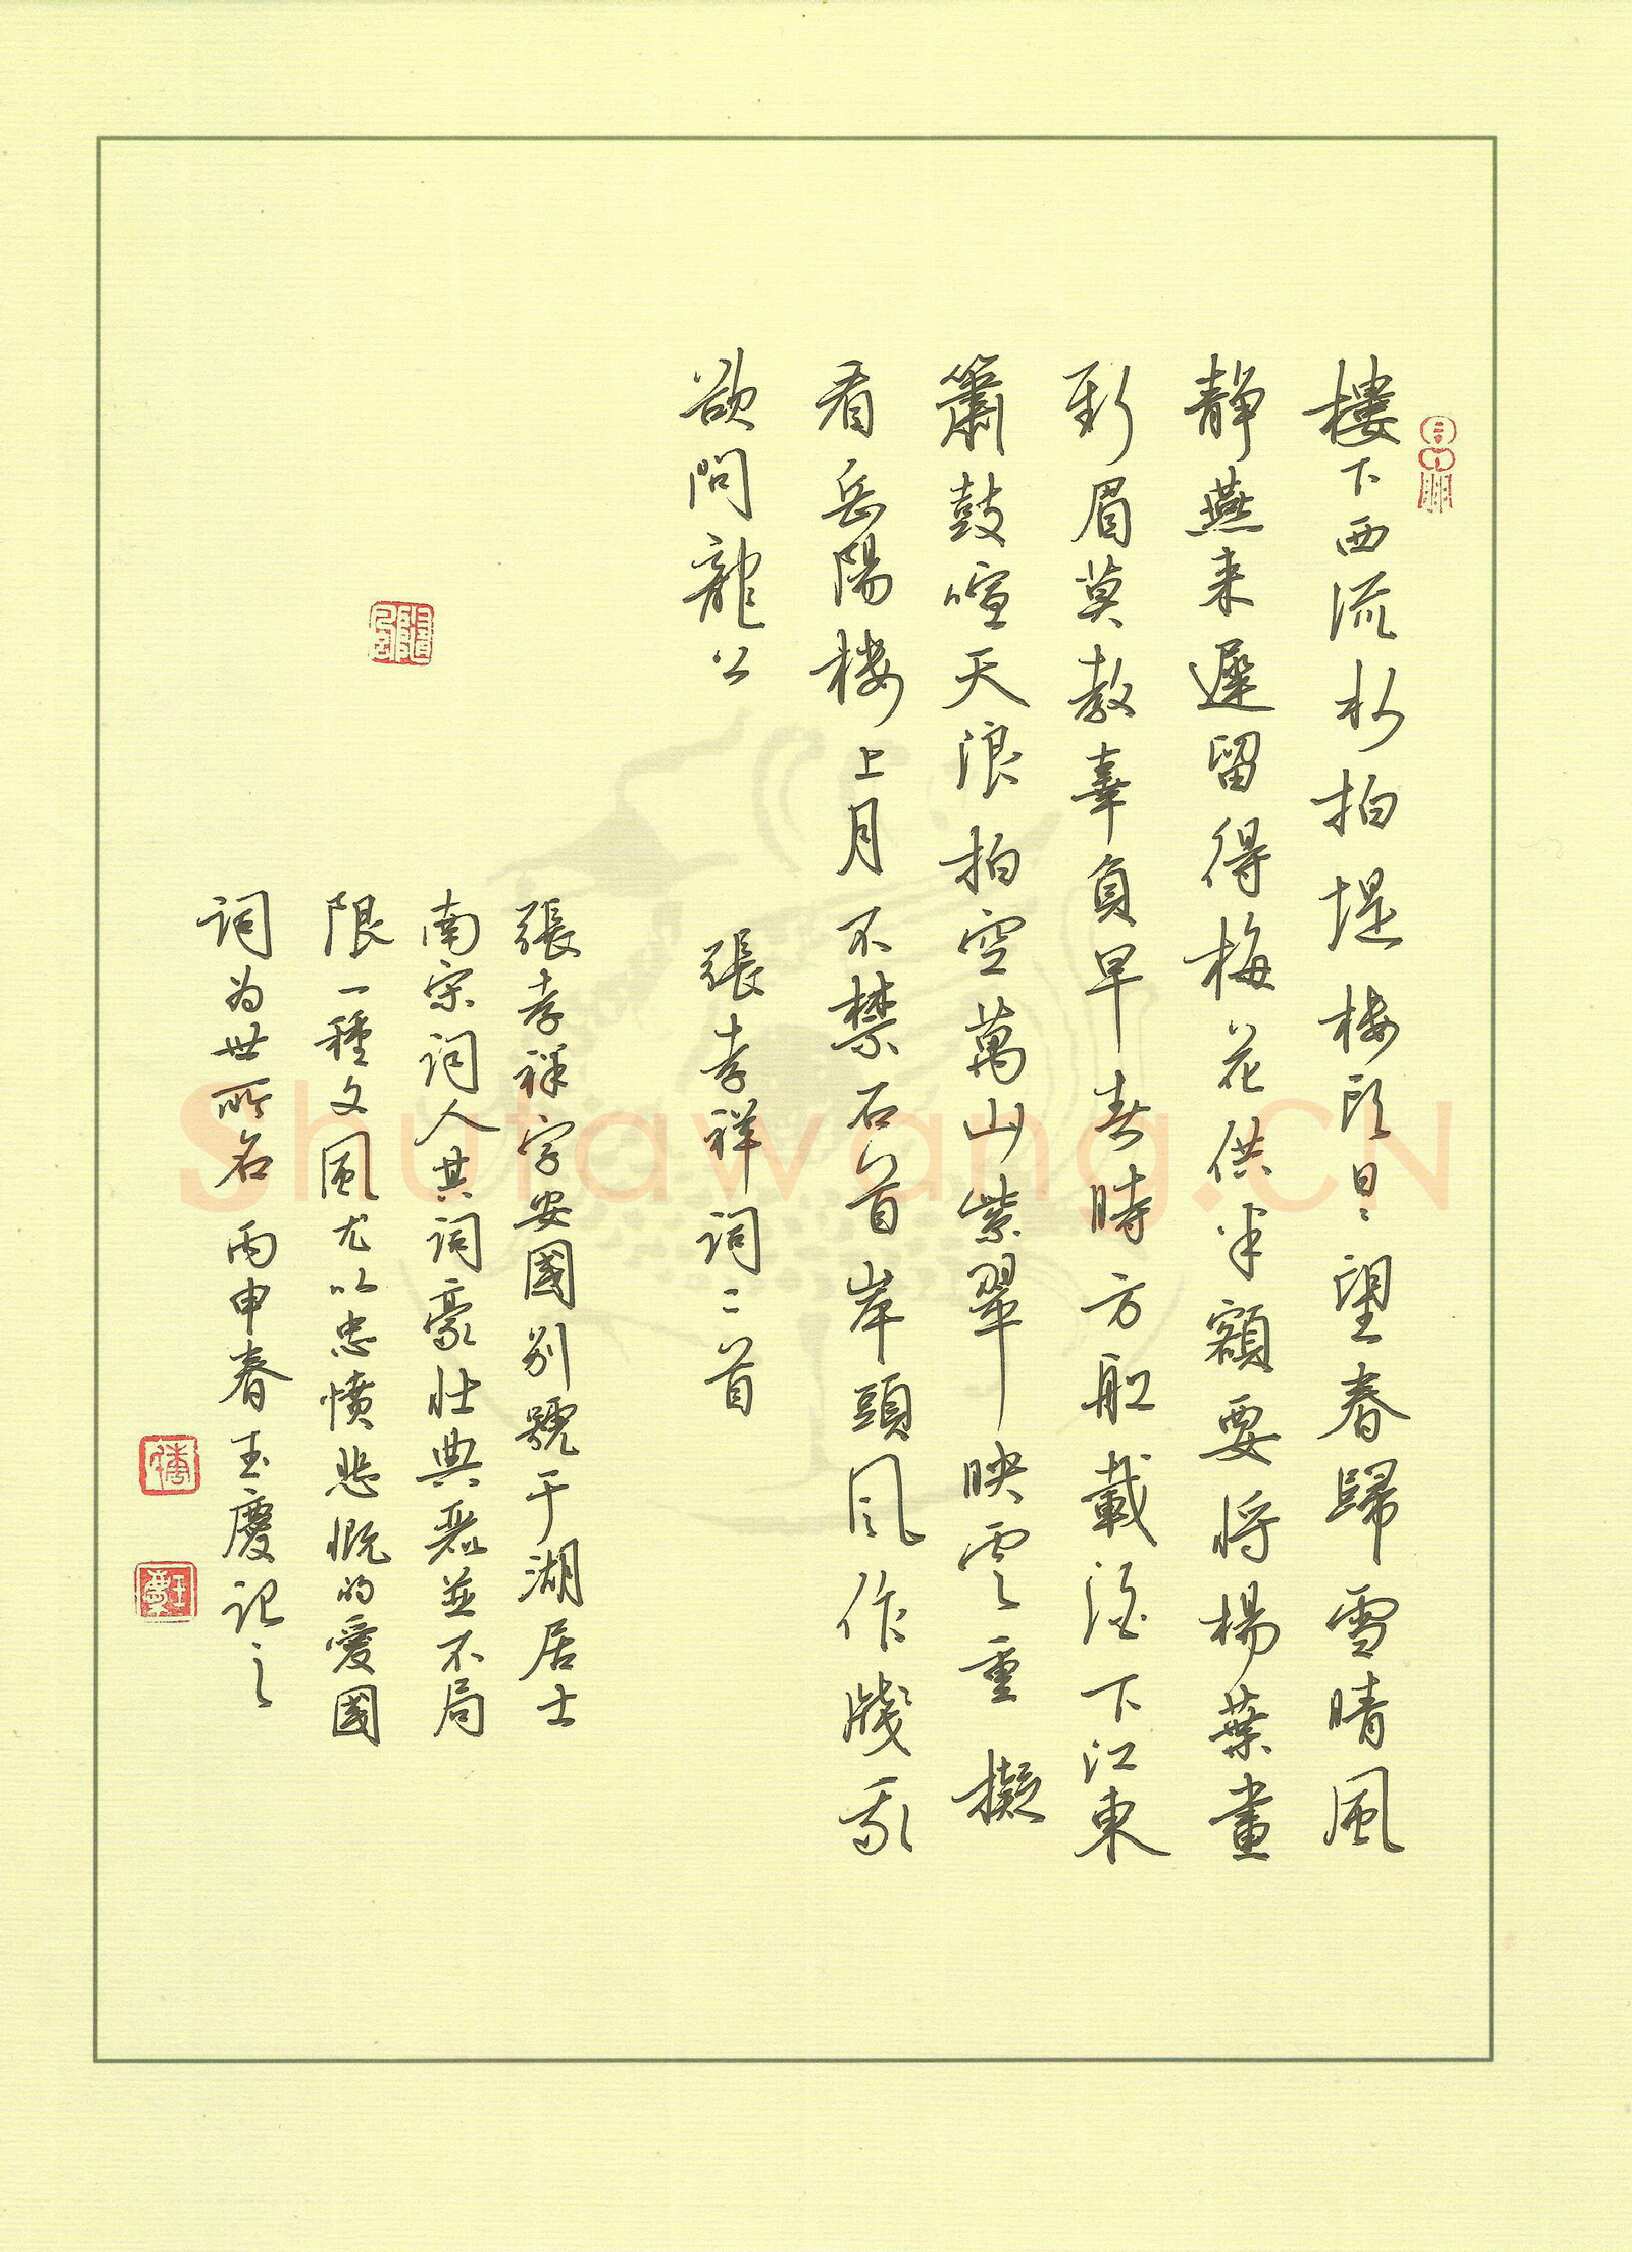 樓下西流水拍堤樓頭日日望春歸雪晴風
靜燕來遲留得梅花供半額要將楊葉畫
新眉莫教辜負早春時方舡載酒下江東
簫鼓喧天浪拍空萬山紫翠映雲重擬
看岳陽樓上月不禁石首岸頭風作牋我
欲問龍公
張孝祥詞二首
張孝祥字安國別號于湖居士
南宋詞人其詞豪壯典麗並不局
限一種文風尤以忠憤悲慨的愛國
詞为世所名 丙申春玉慶記之
Shufawang.CN